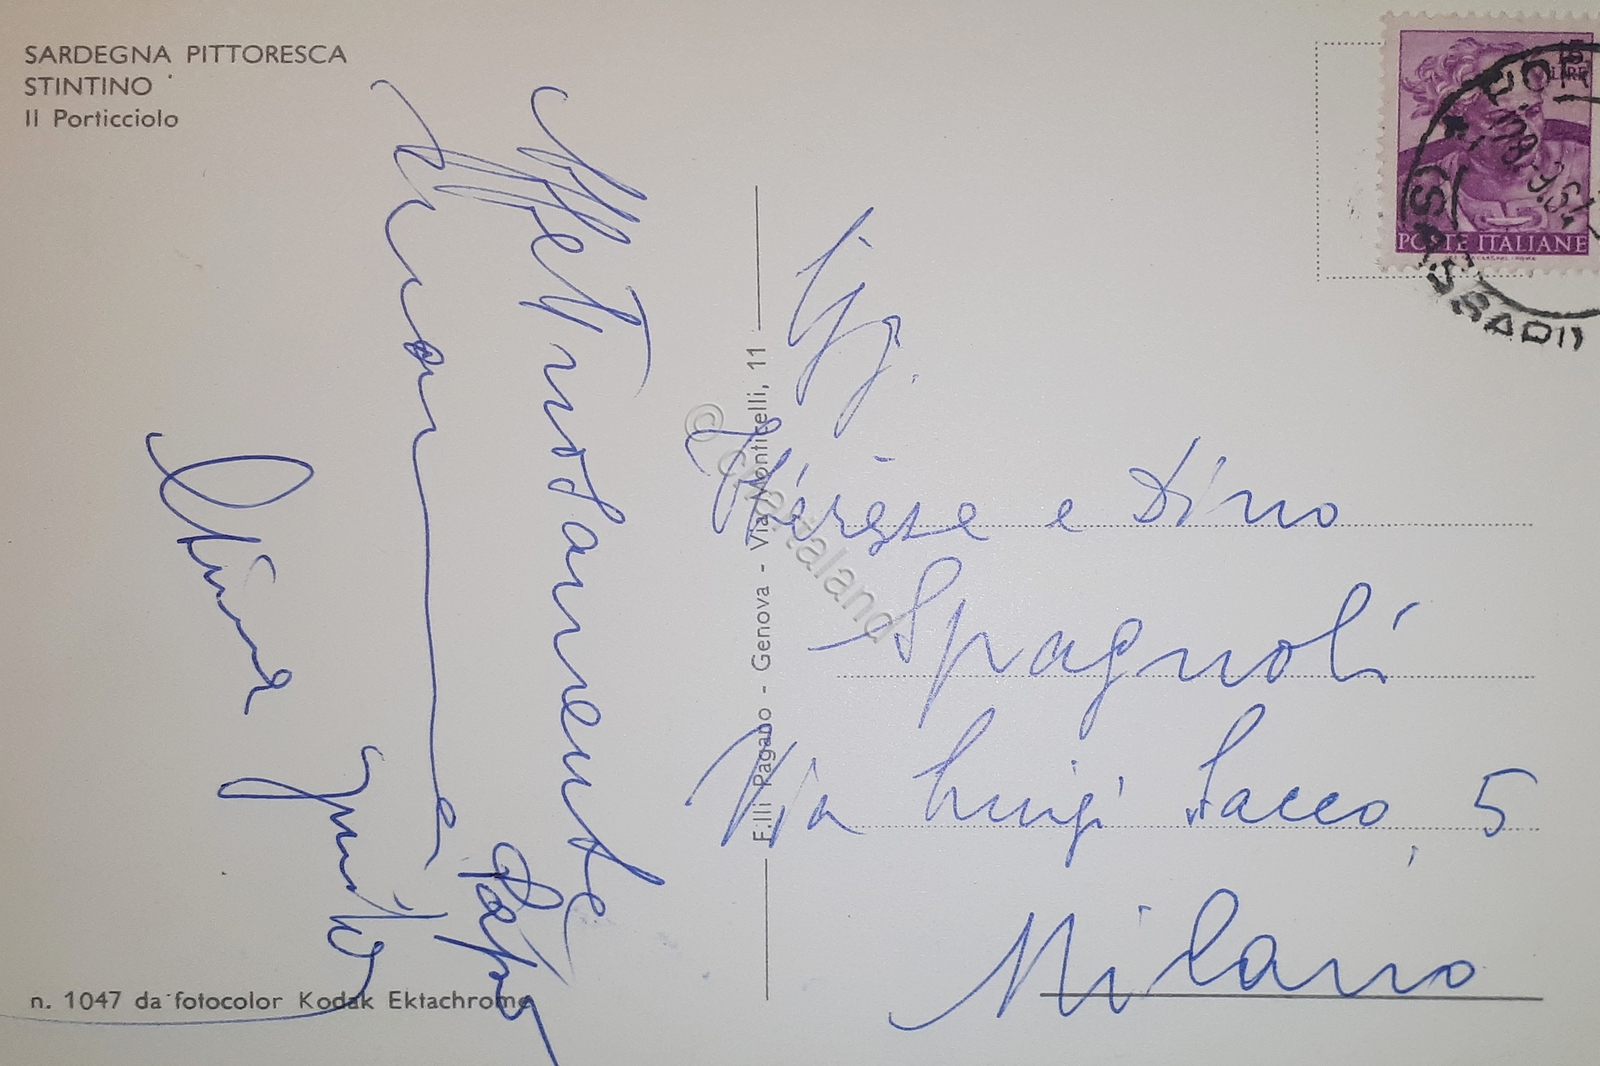 SARDEGNA PITTORESCA
STINTINO
Il Porticciolo
Affettuosamente
Papà
n. 1047 da fotocolor Kodak Ektachrome
F.lli Pagano - Genova - Via Monticelli, 11
© chartaland
15
LIRE
POSTE ITALIANE
(SASSARI)
Thérèse e Dino
Spagnoli
Via Luigi Sacco, 5
Milano